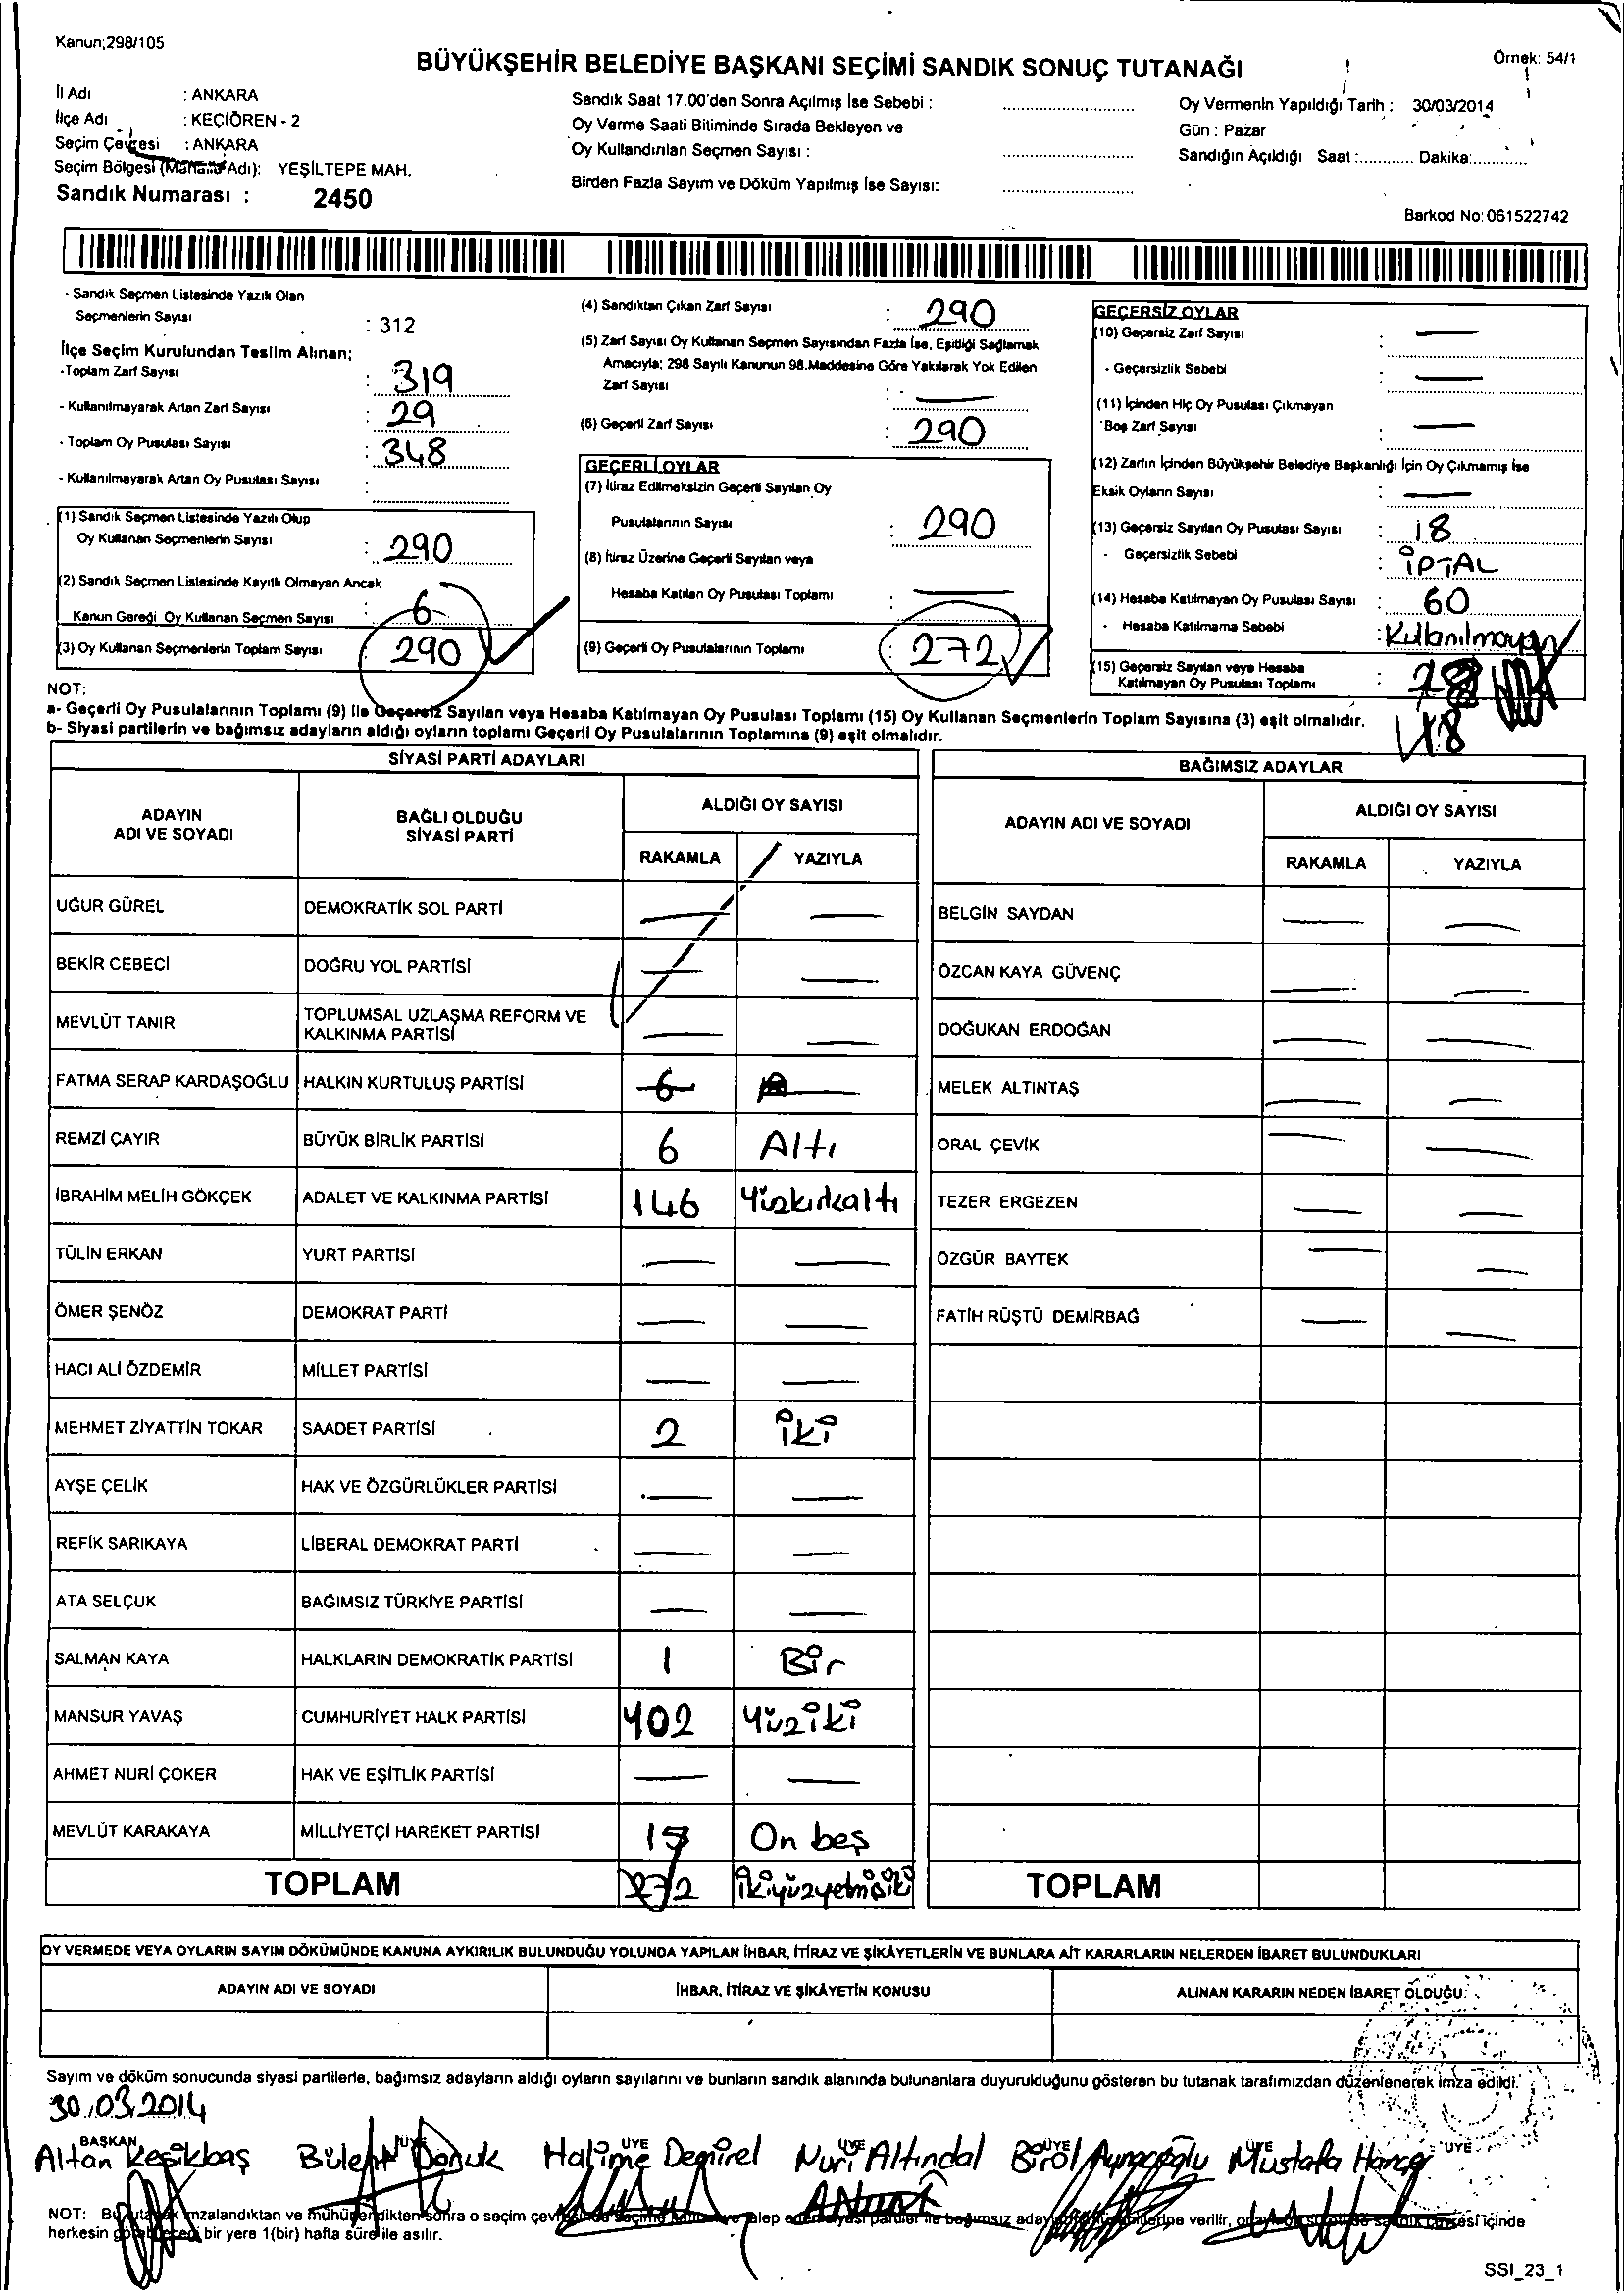 Kanun;298/105
Örnek: 54/1
BÜYÜKŞEHİR BELEDİYE BAŞKANI SEÇİMİ SANDIK SONUÇ TUTANAĞI
İl Adı : ANKARA
İlçe Adı : KEÇİÖREN - 2
Seçim Çevresi : ANKARA
Seçim Bölgesi (Mahalle Adı): YEŞİLTEPE MAH.
Sandık Numarası : 2450
Sandık Saat 17.00'den Sonra Açılmış İse Sebebi :
Oy Verme Saati Bitiminde Sırada Bekleyen ve
Oy Kullandırılan Seçmen Sayısı :
Birden Fazla Sayım ve Döküm Yapılmış İse Sayısı:
Oy Vermenin Yapıldığı Tarih : 30/03/2014
Gün : Pazar
Sandığın Açıldığı Saat :............ Dakika:............
Barkod No: 061522742
- Sandık Seçmen Listesinde Yazılı Olan
Seçmenlerin Sayısı : 312
İlçe Seçim Kurulundan Teslim Alınan;
-Toplam Zarf Sayısı : 319
- Kullanılmayarak Artan Zarf Sayısı : 29
- Toplam Oy Pusulası Sayısı : 348
- Kullanılmayarak Artan Oy Pusulası Sayısı :
(1) Sandık Seçmen Listesinde Yazılı Olup
Oy Kullanan Seçmenlerin Sayısı : 290
(2) Sandık Seçmen Listesinde Kayıtlı Olmayan Ancak
Kanun Gereği Oy Kullanan Seçmen Sayısı : 6
(3) Oy Kullanan Seçmenlerin Toplam Sayısı : 290
(4) Sandıktan Çıkan Zarf Sayısı : 290
(5) Zarf Sayısı Oy Kullanan Seçmen Sayısından Fazla İse, Eşitliği Sağlamak
Amacıyla; 298 Sayılı Kanunun 98.Maddesine Göre Yakılarak Yok Edilen
Zarf Sayısı : —
(6) Geçerli Zarf Sayısı : 290
GEÇERLİ OYLAR
(7) İtiraz Edilmeksizin Geçerli Sayılan Oy
Pusulalarının Sayısı : 290
(8) İtiraz Üzerine Geçerli Sayılan veya
Hesaba Katılan Oy Pusulası Toplamı : —
(9) Geçerli Oy Pusulalarının Toplamı : 272
GEÇERSİZ OYLAR
(10) Geçersiz Zarf Sayısı : —
- Geçersizlik Sebebi : —
(11) İçinden Hiç Oy Pusulası Çıkmayan
Boş Zarf Sayısı : —
(12) Zarfın İçinden Büyükşehir Belediye Başkanlığı İçin Oy Çıkmamış İse
Eksik Oyların Sayısı : —
(13) Geçersiz Sayılan Oy Pusulası Sayısı : 18
- Geçersizlik Sebebi : İPTAL
(14) Hesaba Katılmayan Oy Pusulası Sayısı : 60
- Hesaba Katılmama Sebebi : Kullanılmayan
(15) Geçersiz Sayılan veya Hesaba
Katılmayan Oy Pusulası Toplamı :
18
NOT:
a- Geçerli Oy Pusulalarının Toplamı (9) ile Geçersiz Sayılan veya Hesaba Katılmayan Oy Pusulası Toplamı (15) Oy Kullanan Seçmenlerin Toplam Sayısına (3) eşit olmalıdır.
b- Siyasi partilerin ve bağımsız adayların aldığı oyların toplamı Geçerli Oy Pusulalarının Toplamına (9) eşit olmalıdır.
SİYASİ PARTİ ADAYLARI
ADAYIN ADI VE SOYADI
BAĞLI OLDUĞU SİYASİ PARTİ
ALDIĞI OY SAYISI
RAKAMLA YAZIYLA
UĞUR GÜREL DEMOKRATİK SOL PARTİ — —
BEKİR CEBECİ DOĞRU YOL PARTİSİ — —
MEVLÜT TANIR TOPLUMSAL UZLAŞMA REFORM VE KALKINMA PARTİSİ — —
FATMA SERAP KARDAŞOĞLU HALKIN KURTULUŞ PARTİSİ 6 —
REMZİ ÇAYIR BÜYÜK BİRLİK PARTİSİ 6 Altı
İBRAHİM MELİH GÖKÇEK ADALET VE KALKINMA PARTİSİ 146 Yüzkırkaltı
TÜLİN ERKAN YURT PARTİSİ — —
ÖMER ŞENÖZ DEMOKRAT PARTİ — —
HACI ALİ ÖZDEMİR MİLLET PARTİSİ — —
MEHMET ZİYATTİN TOKAR SAADET PARTİSİ 2 iki
AYŞE ÇELİK HAK VE ÖZGÜRLÜKLER PARTİSİ — —
REFİK SARIKAYA LİBERAL DEMOKRAT PARTİ — —
ATA SELÇUK BAĞIMSIZ TÜRKİYE PARTİSİ — —
SALMAN KAYA HALKLARIN DEMOKRATİK PARTİSİ 1 Bir
MANSUR YAVAŞ CUMHURİYET HALK PARTİSİ 102 Yüziki
AHMET NURİ ÇOKER HAK VE EŞİTLİK PARTİSİ — —
MEVLÜT KARAKAYA MİLLİYETÇİ HAREKET PARTİSİ 15 On beş
TOPLAM 272 İkiyüzyetmişiki
BAĞIMSIZ ADAYLAR
ADAYIN ADI VE SOYADI
ALDIĞI OY SAYISI
RAKAMLA YAZIYLA
BELGİN SAYDAN — —
ÖZCAN KAYA GÜVENÇ — —
DOĞUKAN ERDOĞAN — —
MELEK ALTINTAŞ — —
ORAL ÇEVİK — —
TEZER ERGEZEN — —
ÖZGÜR BAYTEK — —
FATİH RÜŞTÜ DEMİRBAĞ — —
TOPLAM
OY VERMEDE VEYA OYLARIN SAYIM DÖKÜMÜNDE KANUNA AYKIRILIK BULUNDUĞU YOLUNDA YAPILAN İHBAR, İTİRAZ VE ŞİKÂYETLERİN VE BUNLARA AİT KARARLARIN NELERDEN İBARET BULUNDUKLARI
ADAYIN ADI VE SOYADI İHBAR, İTİRAZ VE ŞİKÂYETİN KONUSU ALINAN KARARIN NEDEN İBARET OLDUĞU
Sayım ve döküm sonucunda siyasi partilerle, bağımsız adayların aldığı oyların sayılarını ve bunların sandık alanında bulunanlara duyurulduğunu gösteren bu tutanak tarafımızdan düzenlenerek imza edildi.
30.03.2014
BAŞKAN ÜYE ÜYE ÜYE ÜYE ÜYE ÜYE
Altan Keşikbaş Bülent Donuk Halime Demirel Nuri Altındal Birol Mustafa
NOT: Bu tutanak imzalandıktan ve mühürlendikten sonra o seçim çevresinde seçime katılan ve talep eden siyasi partiler ile bağımsız adaylara verilir, sandık çevresi içinde
herkesin görebileceği bir yere 1(bir) hafta süre ile asılır.
SSI_23_1